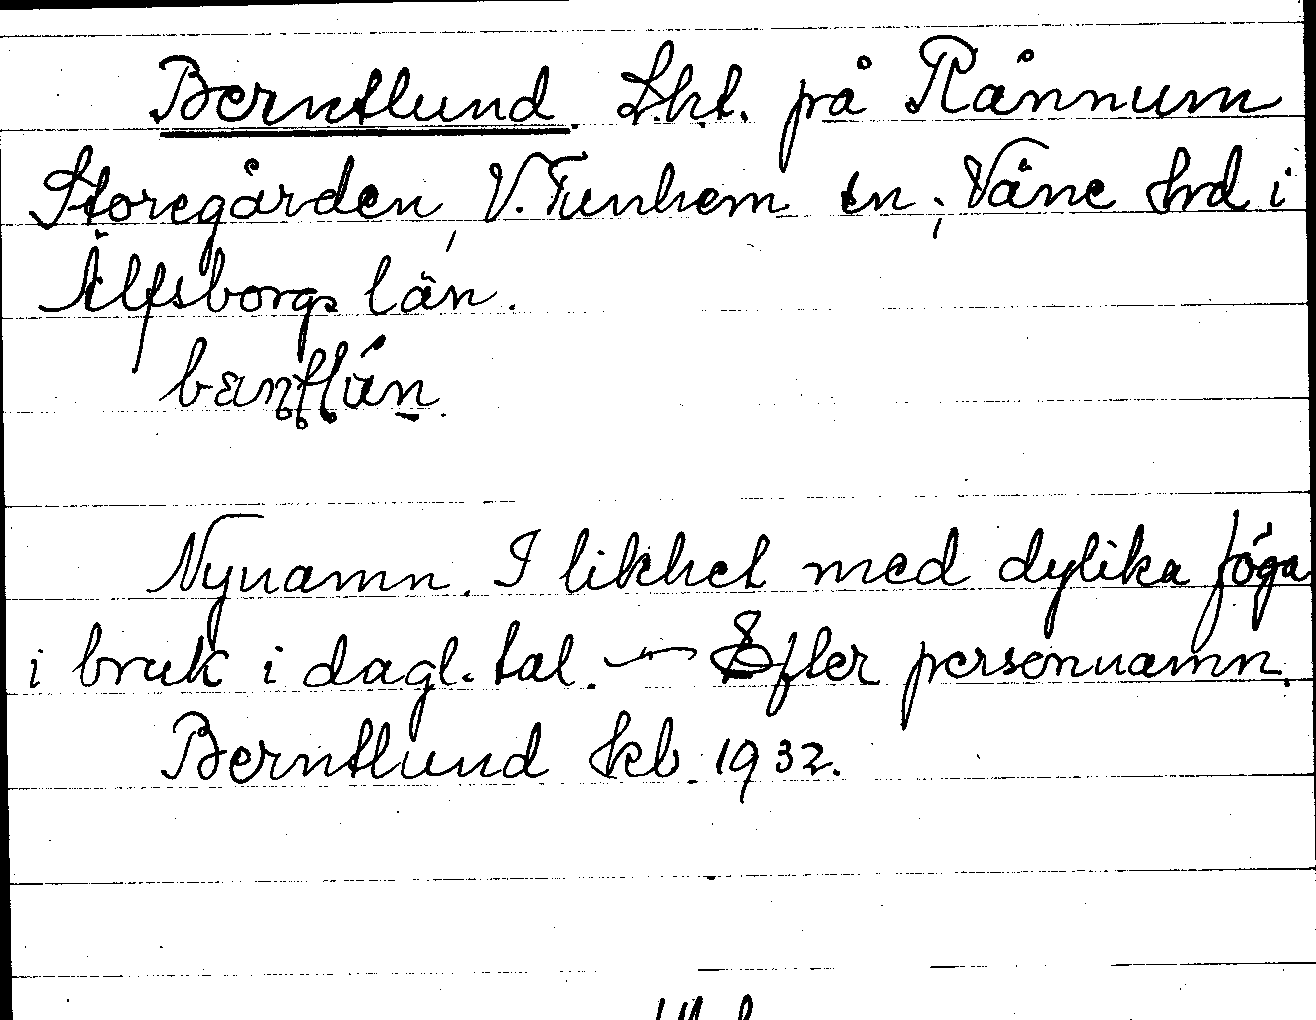 Berntlund. Lht. på Rånnum
Storegården, V. Tunhem sn; Väne hd i
Älfsborgs län.
Nynamn. I likhet med dylika föga
i bruk i dagl. tal. — Efter personnamn.
Berntlund kb. 1932.